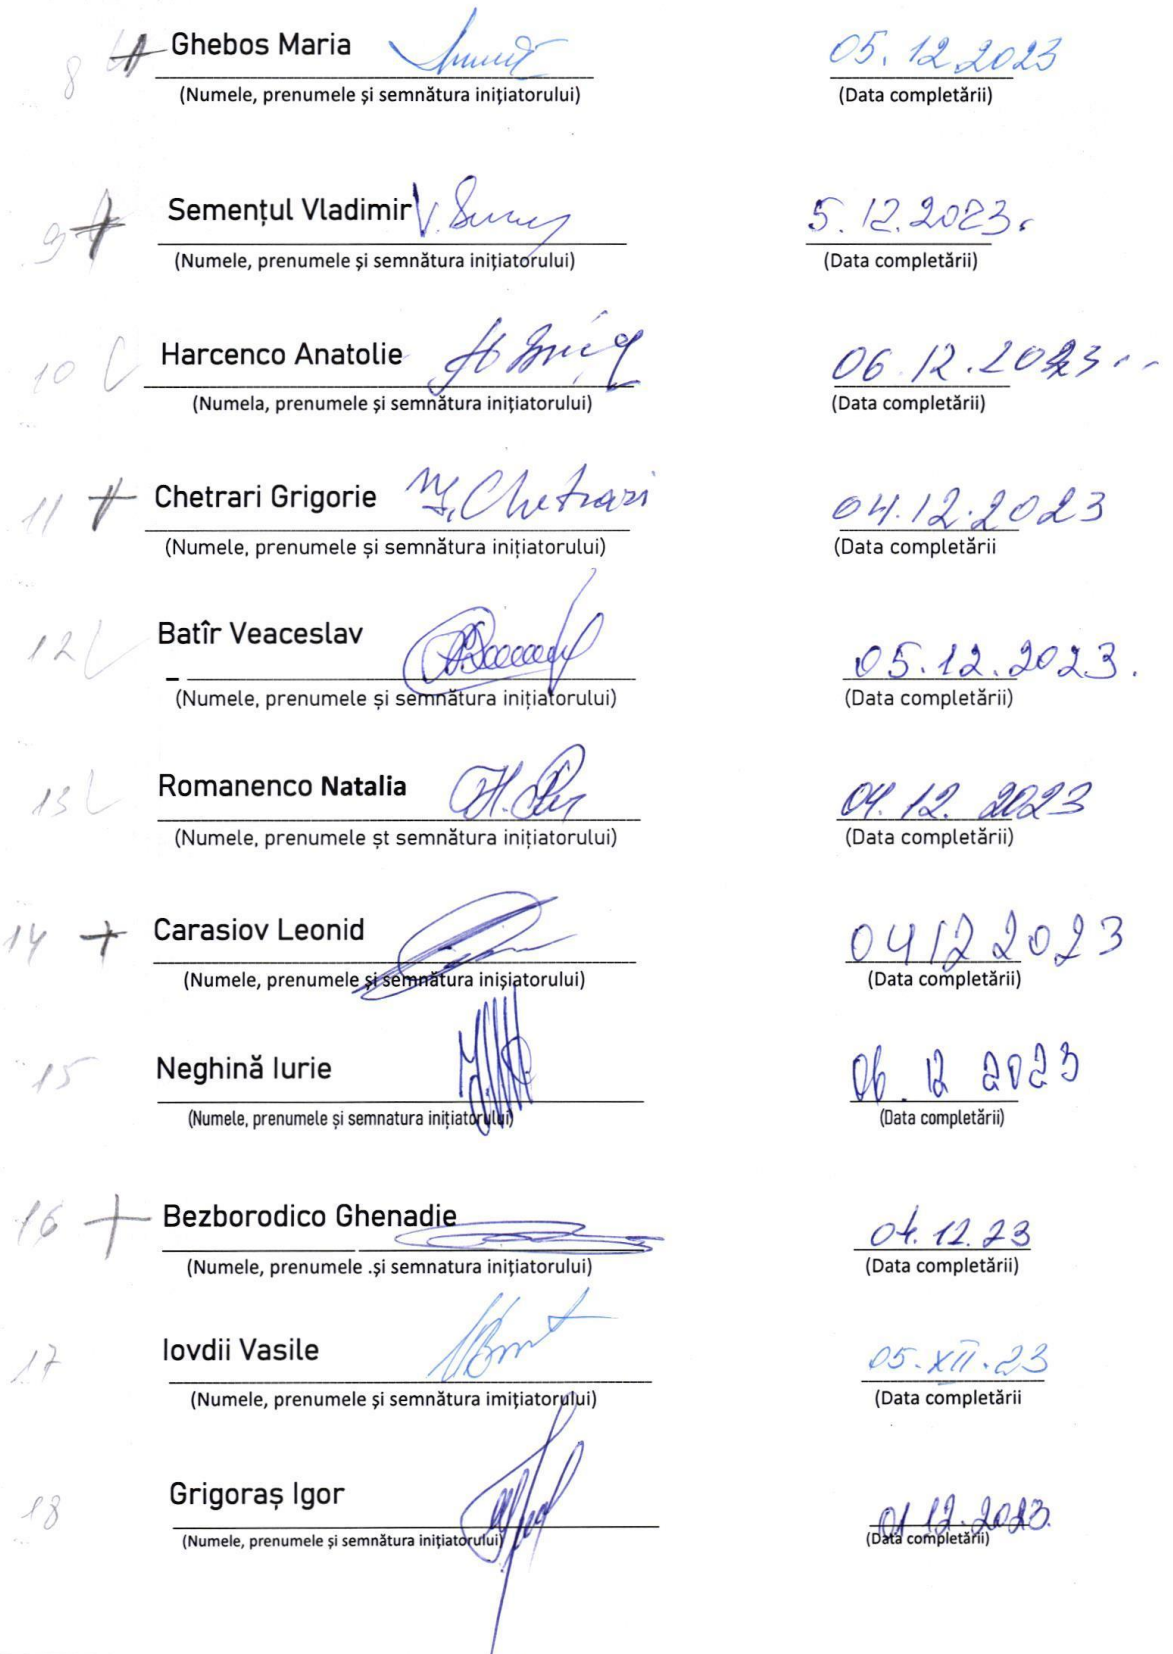 8 Ghebos Maria 05.12.2023
(Numele, prenumele și semnătura inițiatorului) (Data completării)
9 Semențul Vladimir V. 5.12.2023.
(Numele, prenumele și semnătura inițiatorului) (Data completării)
10 Harcenco Anatolie 06.12.2023
(Numela, prenumele și semnătura inițiatorului) (Data completării)
11 Chetrari Grigorie Chetrari 04.12.2023
(Numele, prenumele și semnătura inițiatorului) (Data completării
12 Batîr Veaceslav 05.12.2023.
(Numele, prenumele și semnătura inițiatorului) (Data completării)
13 Romanenco Natalia 04.12.2023
(Numele, prenumele șt semnătura inițiatorului) (Data completării)
14 Carasiov Leonid 04 12 2023
(Numele, prenumele și semnătura inișiatorului) (Data completării)
15 Neghină Iurie 06.12 2023
(Numele, prenumele și semnatura inițiatorului) (Data completării)
16 Bezborodico Ghenadie 04.12.23
(Numele, prenumele .și semnatura inițiatorului) (Data completării)
17 Iovdii Vasile 05.XII.23
(Numele, prenumele și semnătura imițiatorului) (Data completării
18 Grigoraș Igor 01 12.2023.
(Numele, prenumele și semnătura inițiatorului) (Data completării)